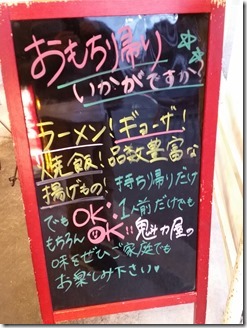 おもち帰り
いかがですか?
ラーメン!ギョーザ!
焼飯!品数豊富な
揚げもの!持ち帰りだけ
でもOK!1人前だけでも
もちろんOK!!魁力屋の
味をぜひご家庭でも
お楽しみ下さい♥